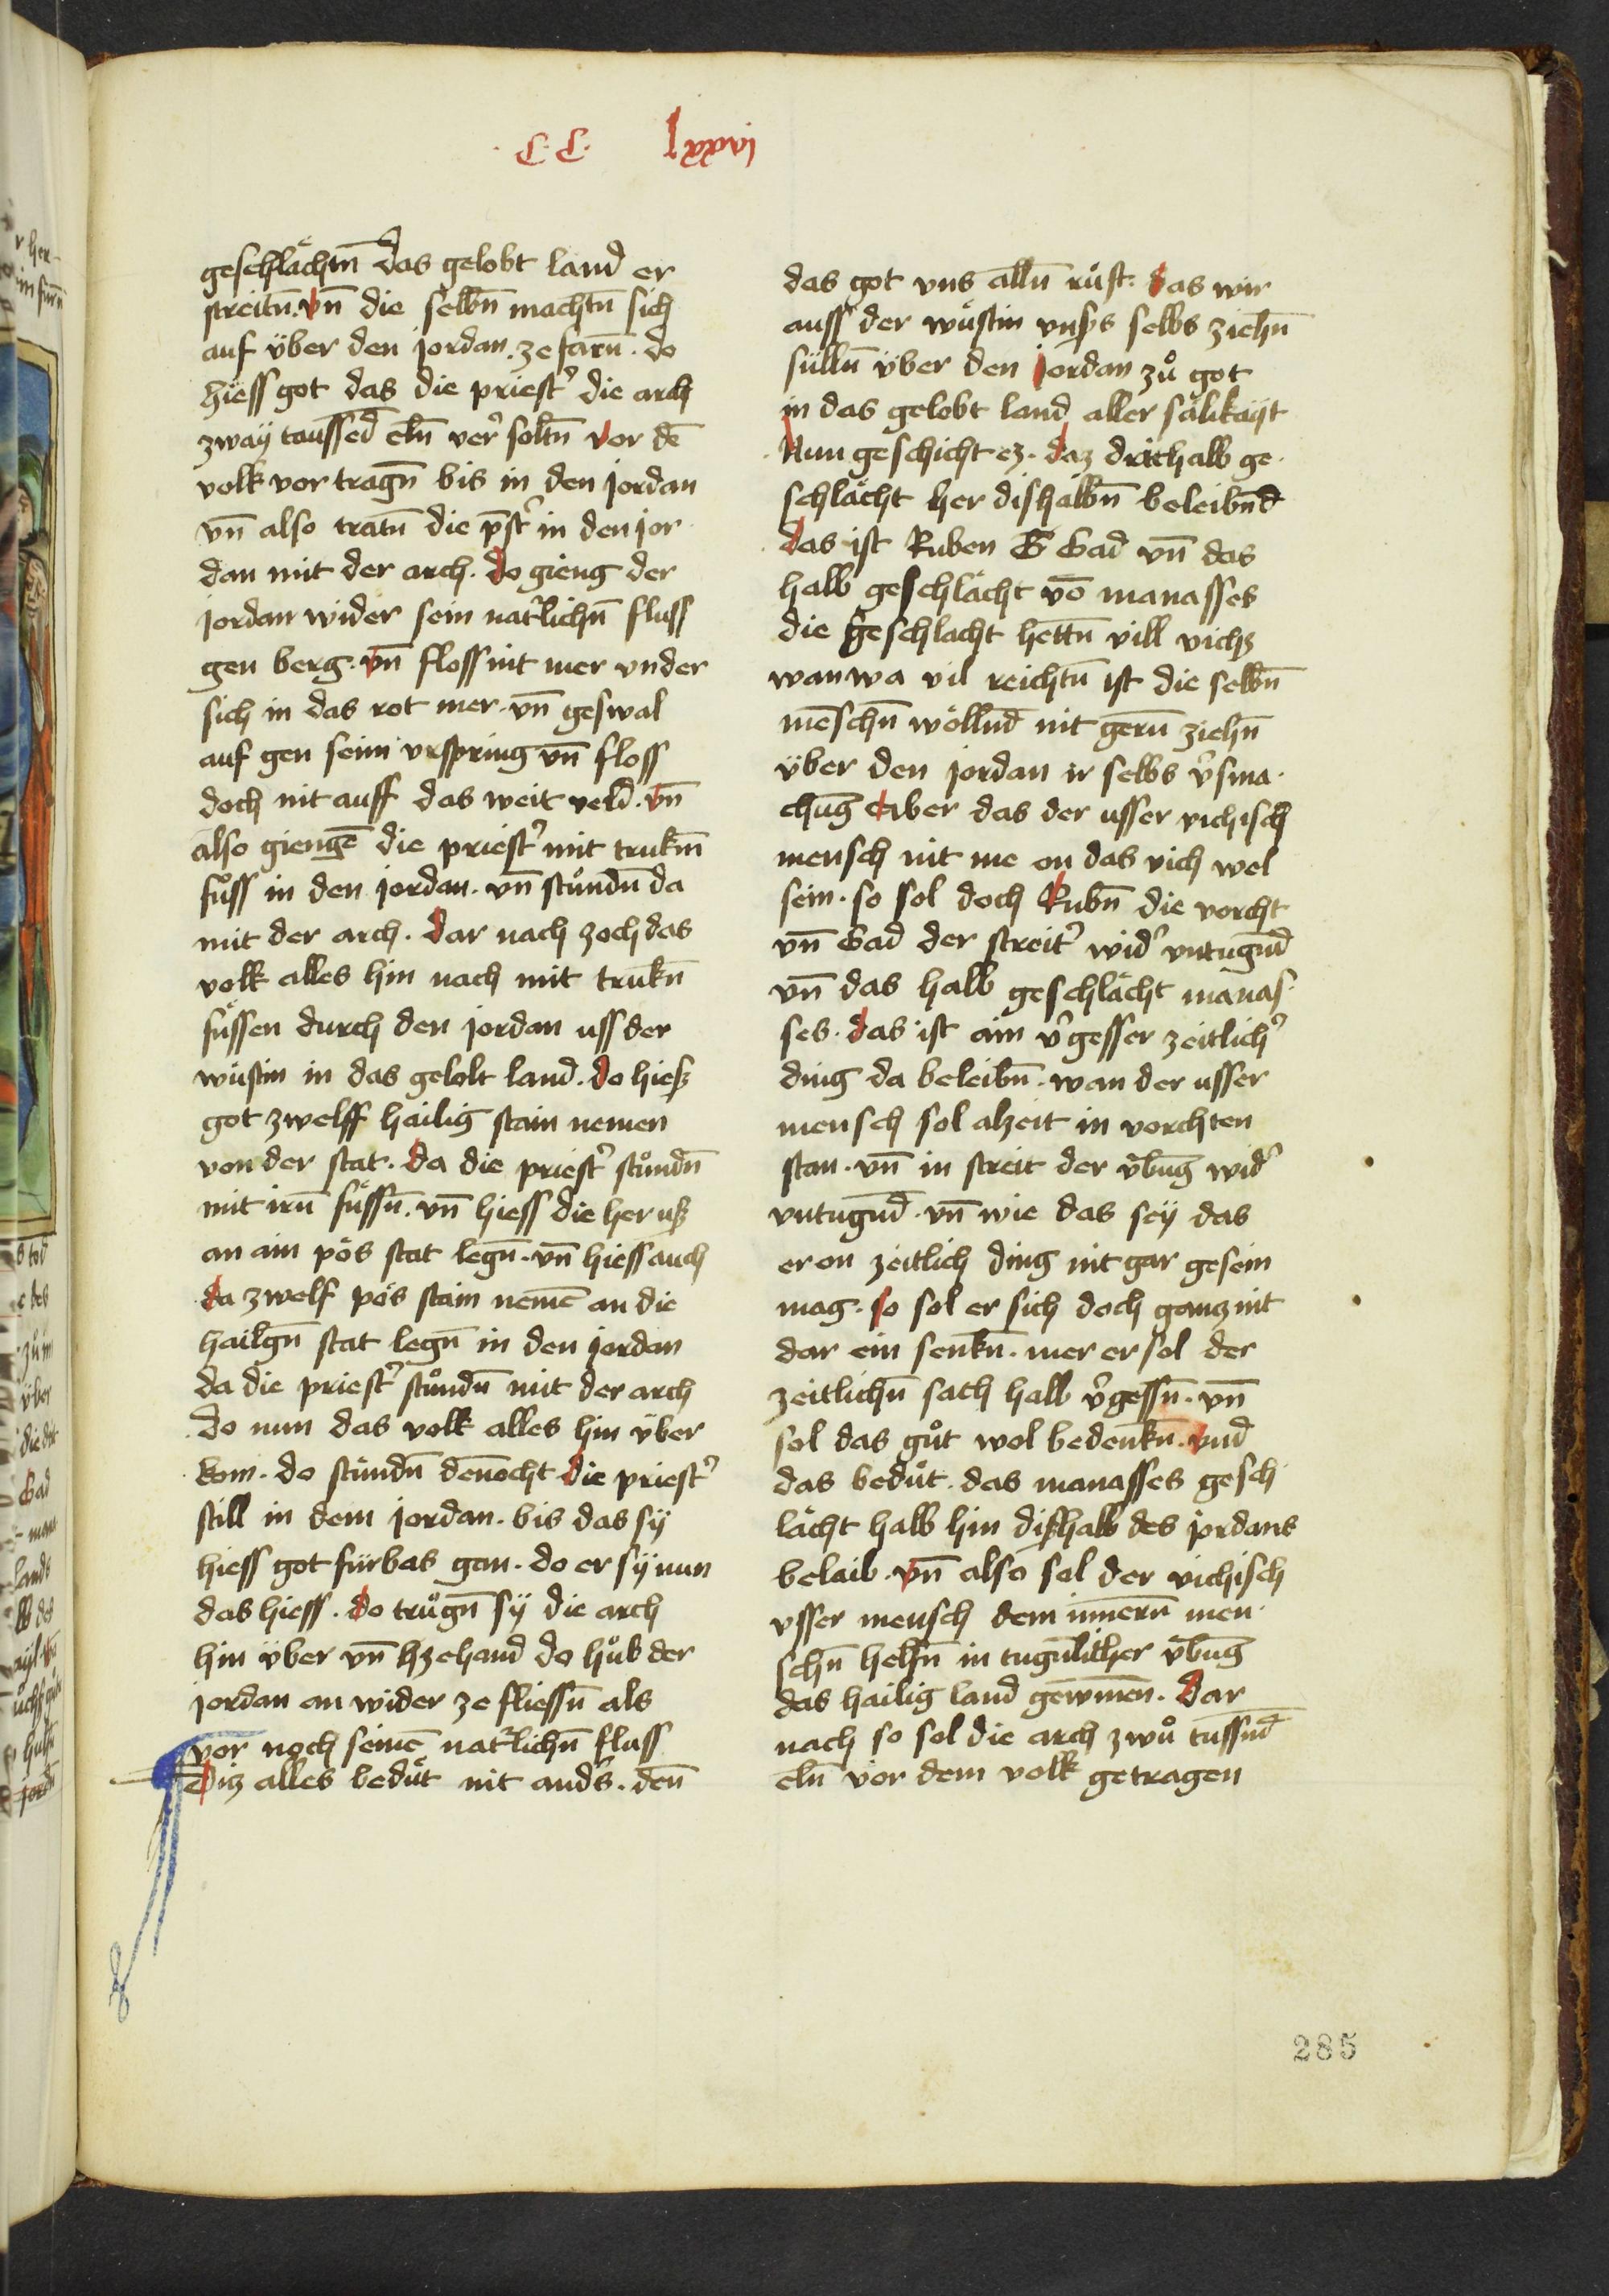 ·C·C· lxxxvi
geschlächtn̄ das gelobt land er
streitn̄. vn̄ die selbn̄ machtn̄ sich
auf v̈ber den jordan ze farn̄. do
hiess got das die priest᾽ die arch
zwaÿ taussēd eln̄ ver᾽ soltn̄ vor dē
volk vor tragn̄ bis in den jordan
vn̄ also tratn̄ die p̄st᾽ in den jor
dan mit der arch. do gieng der
jordan wider sein nat᾽lichn̄ fluss
gen berg. vn̄ floss nit mer vnder
sich in das rot mer. vn̄ geswal
auf gen seim vrspring vn̄ floss
doch nit auff das weit veld. vn̄
also giengē die priest᾽ mit trukm̄
fůss in den jordan. vn̄ stůndn̄ da
mit der arch. dar nach zoch das
volk alles hin nach mit trukn̄
fu̎ssen durch den jordan uss der
wüstin in das gelolt land. do hiesz
got zwelff hailig stain nemen
von der stat. da die priest᾽ stůndn̄
mit irn̄ füssn̄. vn̄ hiess die her usz
an ain pös stat legn̄. vn̄ hiess auch
da zwelf pös stain nemē an die
hailgn̄ stat legn̄ in den jordan
da die priest᾽ stůndn̄ mit der arch
do nun das volk alles hin v̈ber
kom. do stůndn̄ dēnocht die priest᾽
still in dem jordan. bis das sÿ
hiess got fürbas gan. do er sÿ nun
das hiess. do trůgn̄ sÿ die arch
hin v̈ber vn̄ zehand do hůb der
jordan an wider ze fliessn̄ als
vor noch seinē nat᾽lichn̄ fluss
Diz alles bedüt nit and᾽s. den̄
das got vns alln̄ rüft. das wir
auss der wüstin vns᾽s selbs ziehn̄
sülln̄ v̈ber den jordan zů got
in das gelobt land aller sälikaÿt
Nun geschicht ez. daz drithalb ge
schlächt her dishalbn̄ beleibn̄d
das ist Ruben G Gad vn̄ das
halb geschlächt vō manasses
die geschlacht hettn̄ vill vichz
wan wa vil reichtū ist die selbn̄
mēschn̄ wöllnd nit gern̄ ziehn̄
v̈ber den jordan ir selbs v᾽sma
chūg aber das der usser vichisch
mensch nit me on das vich wel
sein. so sol doch Rubn̄ die vorcht
vn̄ Gad der streit᾽ wid᾽ vntugn̄d
vn̄ das halb geschlächt manas
ses. das ist ain v᾽gesser zeitlich᾽
ding da beleibn̄. wan der usser
mensch sol alzeit in vorchten
stan. vn̄ in streit der v̈būg wid᾽
vntugn̄d. vn̄ wie das seÿ das
er on zeitlich ding nit gar gesein
mag. so sol er sich doch ganz nit
dar ein senkn̄. mer er sol der
zeitlichn̄ sach halb v᾽gessn̄. vn̄
sol das gůt wol bedenkn̄. vnd
das bedüt. das manasses gesch
lächt halb hin diszhalb des jordans
belaib. vn̄ also sol der vichisch
vsser mensch dem innern̄ men
schn̄ helfn̄ in tugn̄licher v̈būg
das hailig land gewinnen. Dar
nach so sol die arch zwů tussn̄d
eln̄ vor dem volk getragen
285